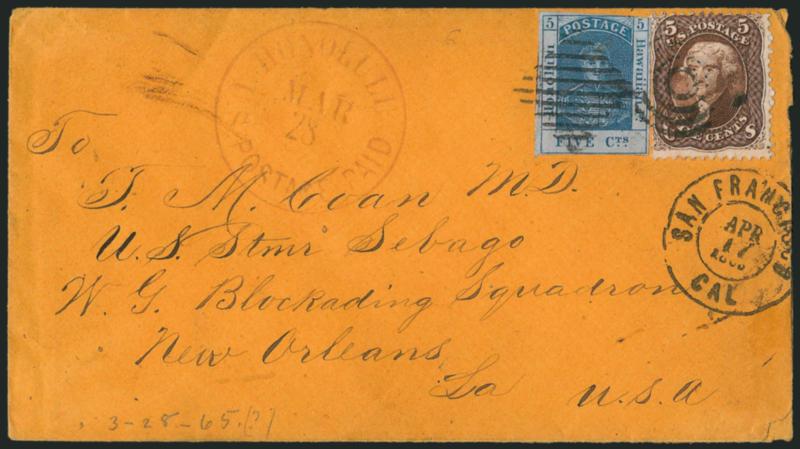 HONOLULU
MAR
28
POSTAGE PAID
5 POSTAGE 5
HONOLULU
Hawaiian Is.
FIVE Cts
5 U.S. POSTAGE 5
CENTS
SAN FRANCISCO
APR
17
CAL
To
T. M. Coan M.D.
U.S. Stmr Sebago
W. G. Blockading Squadron
New Orleans
La U.S.A
3-28-65.(?)